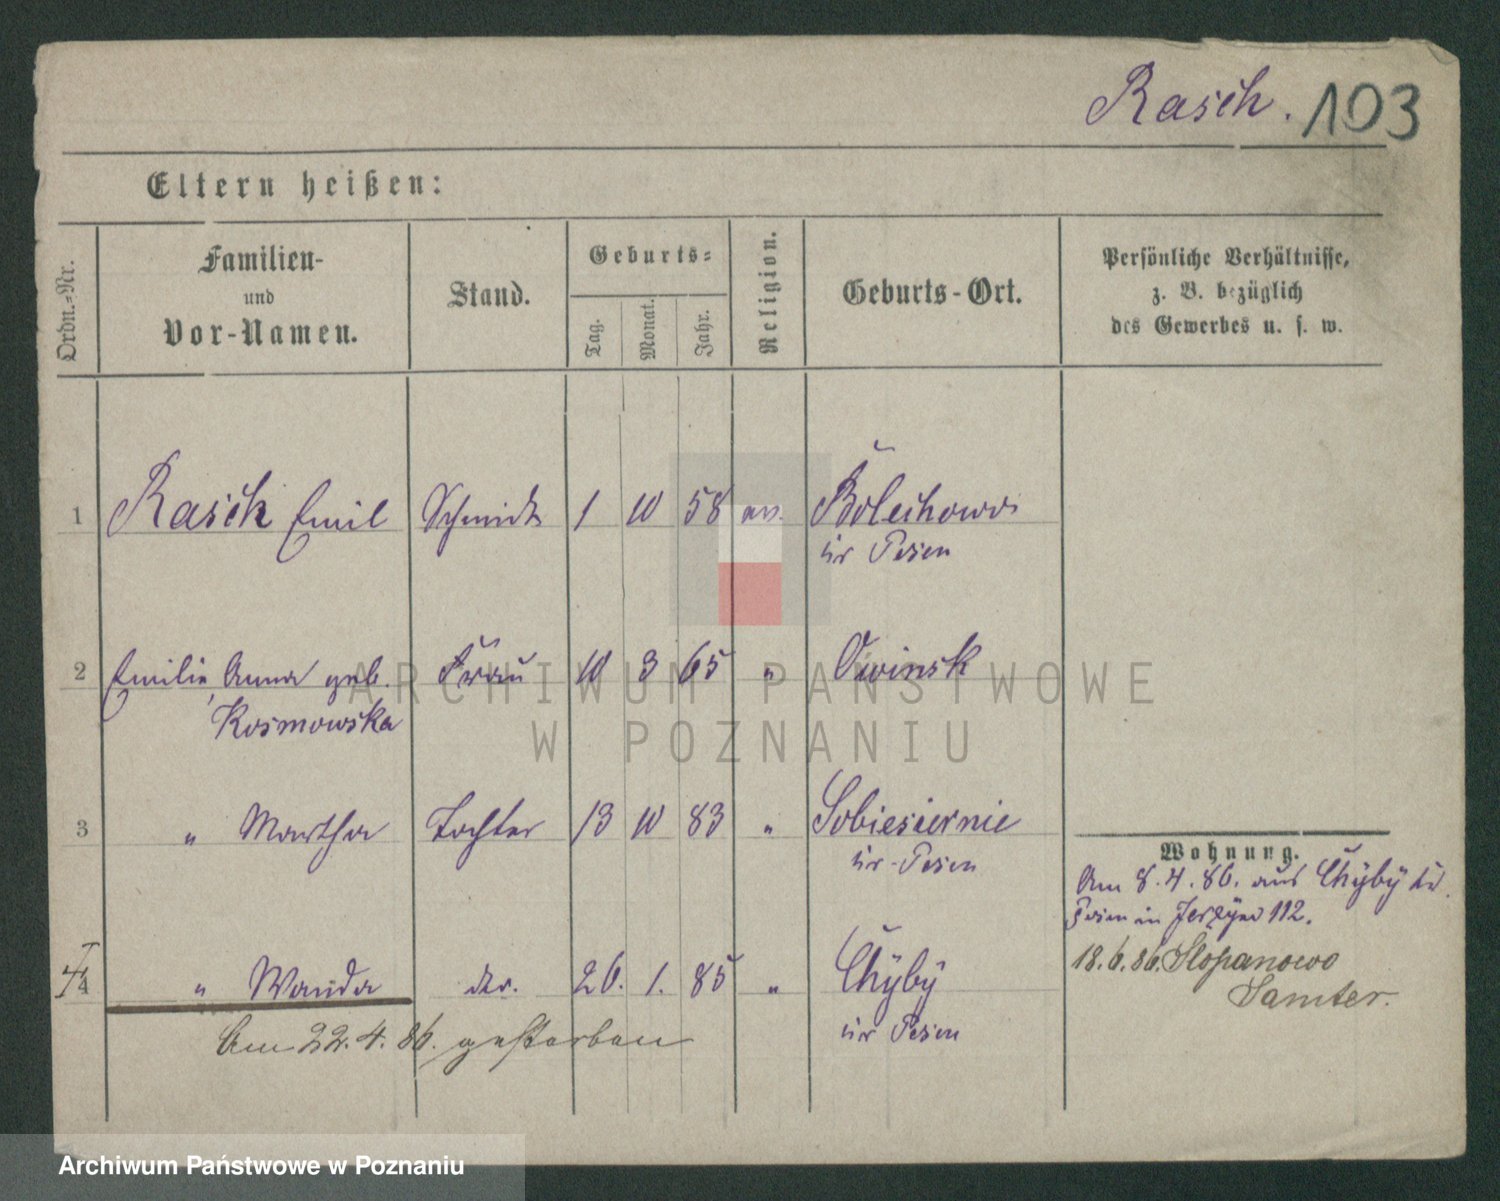 Rasch. 103
Eltern heißen:
Ordn.-Nr.
Familien-
und
Vor-Namen.
Stand.
Geburts-
Tag.
Monat.
Jahr.
Religion.
Geburts-Ort.
Persönliche Verhältnisse,
z. B. bezüglich
des Gewerbes u. s. w.
1 Rasch Emil Schmidt 1 10 58 Bolechowo
Posen
2 Emilie, Anna geb. Frau 10 3 65 " Owinsk
Kosmowska
3 " Martha Tochter 13 10 83 " Sobiesiernie
Posen
4 " Wanda 26. 1. 85 " Chyby
Posen
Am 22.4.86. gestorben
Wohnung.
Am 8.4.86. aus Chyby
Posen in Jerzyce 112.
18.6.86. Slopanowo
Samter.
ARCHIWUM PAŃSTWOWE
W POZNANIU
Archiwum Państwowe w Poznaniu